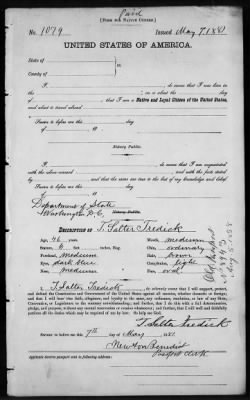 Paid
[FORM FOR NATIVE CITIZEN.]
No. 1079 Issued May 7, 1881
UNITED STATES OF AMERICA.
State of
County of
I, do swear that I was born in
the on or about the day of
; that I am a Native and Loyal Citizen of the United States,
and about to travel abroad
Sworn to before me, this day
of 18
Notary Public.
I, do swear that I am acquainted
with the above-named and with the facts stated
by and that the same are true to the best of my knowledge and belief.
Sworn to before me, this day
of 18
Department of State
Washington D.C.
Notary Public.
DESCRIPTION OF T. Salter Tredick
Age, 46 years. Mouth, medium
Stature, feet inches, Eng. Chin, ordinary
Forehead, medium Hair, brown
Eyes, dark blue Complexion, light
Nose, medium Face, oval
Old passport
I, T. Salter Tredick do solemnly swear that I will support, protect, and
defend the Constitution and Government of the United States against all enemies, whether domestic or foreign,
and that I will bear true faith, allegiance, and loyalty to the same, any ordinance, resolution, or law of any State,
Convention, or Legislature to the contrary notwithstanding; and further, that I do this with a full determination,
pledge, and purpose, without any mental reservation or evasion whatsoever; and further, that I will well and
faithfully perform all the duties which may be required of me by law: So help me God.
T. Salter Tredick
Sworn to before me this 7th day of May 1881
Newton Benedict
Passport clerk
Applicants desires passport sent to following address: